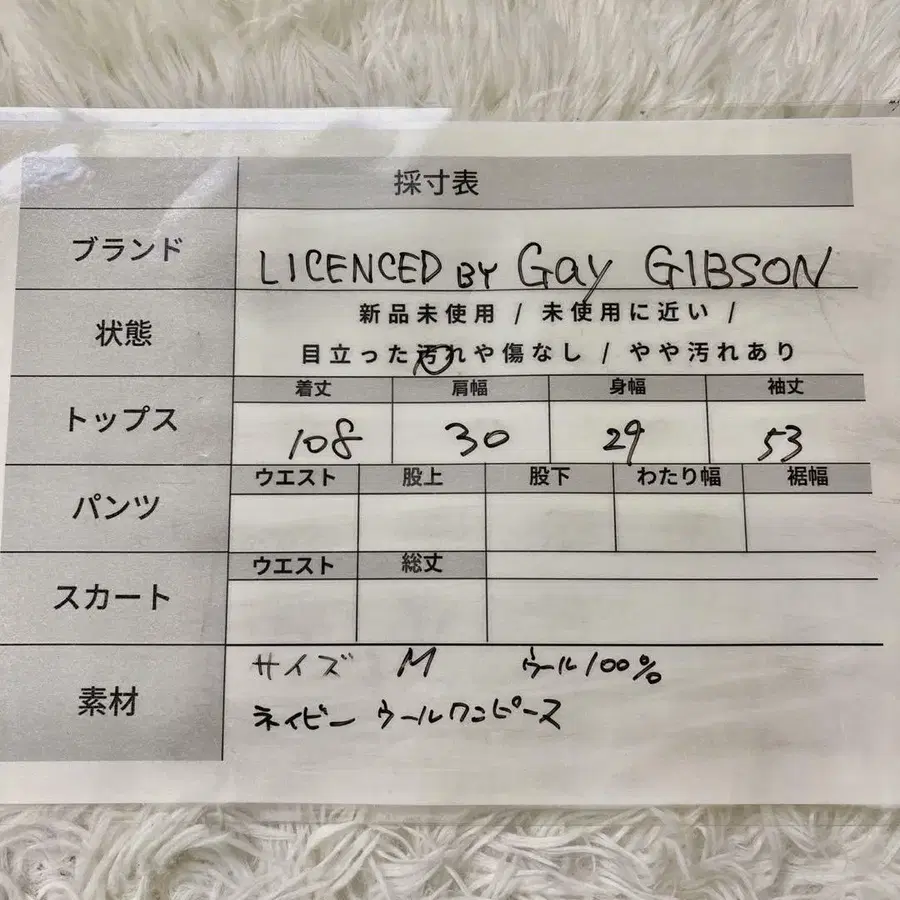 採寸表
ブランド LICENCED BY Gay GIBSON
状態 新品未使用 / 未使用に近い /
目立った汚れや傷なし / やや汚れあり
トップス 着丈 肩幅 身幅 袖丈
108 30 29 53
パンツ ウエスト 股上 股下 わたり幅 裾幅
スカート ウエスト 総丈
素材 サイズ M ウール100%
ネイビー ウールワンピース